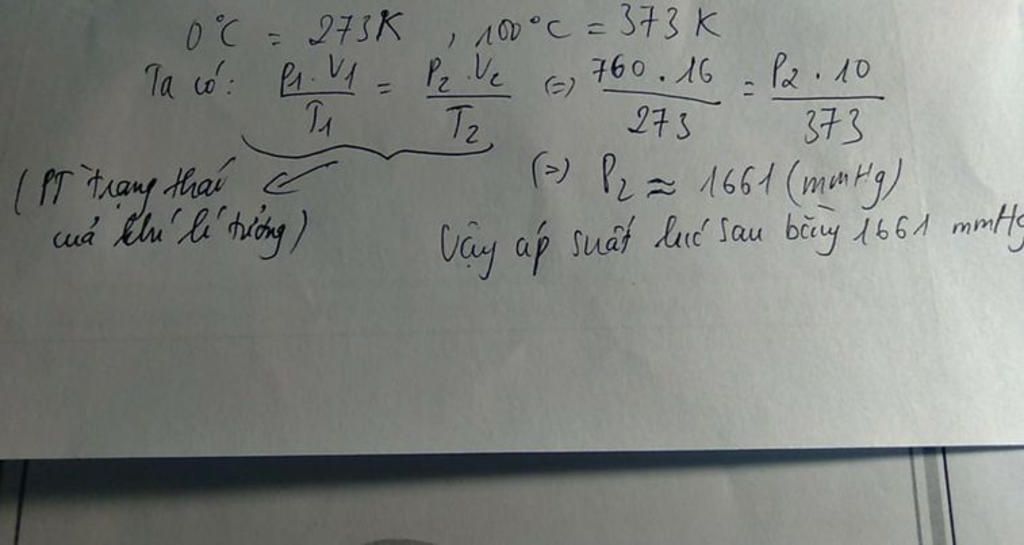 0°C = 273K , 100°C = 373K
Ta có: P1.V1/T1 = P2.V2/T2 (=) 760.16/273 = P2.10/373
(=) P2 ≈ 1661 (mmHg)
(PT trạng thái
của khí lí tưởng)
Vậy áp suất lúc sau bằng 1661 mmHg